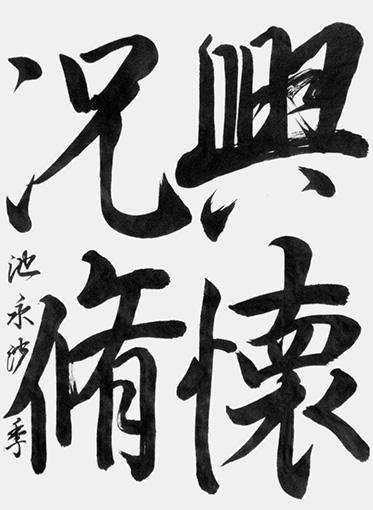 興懐
况脩
池永沙季